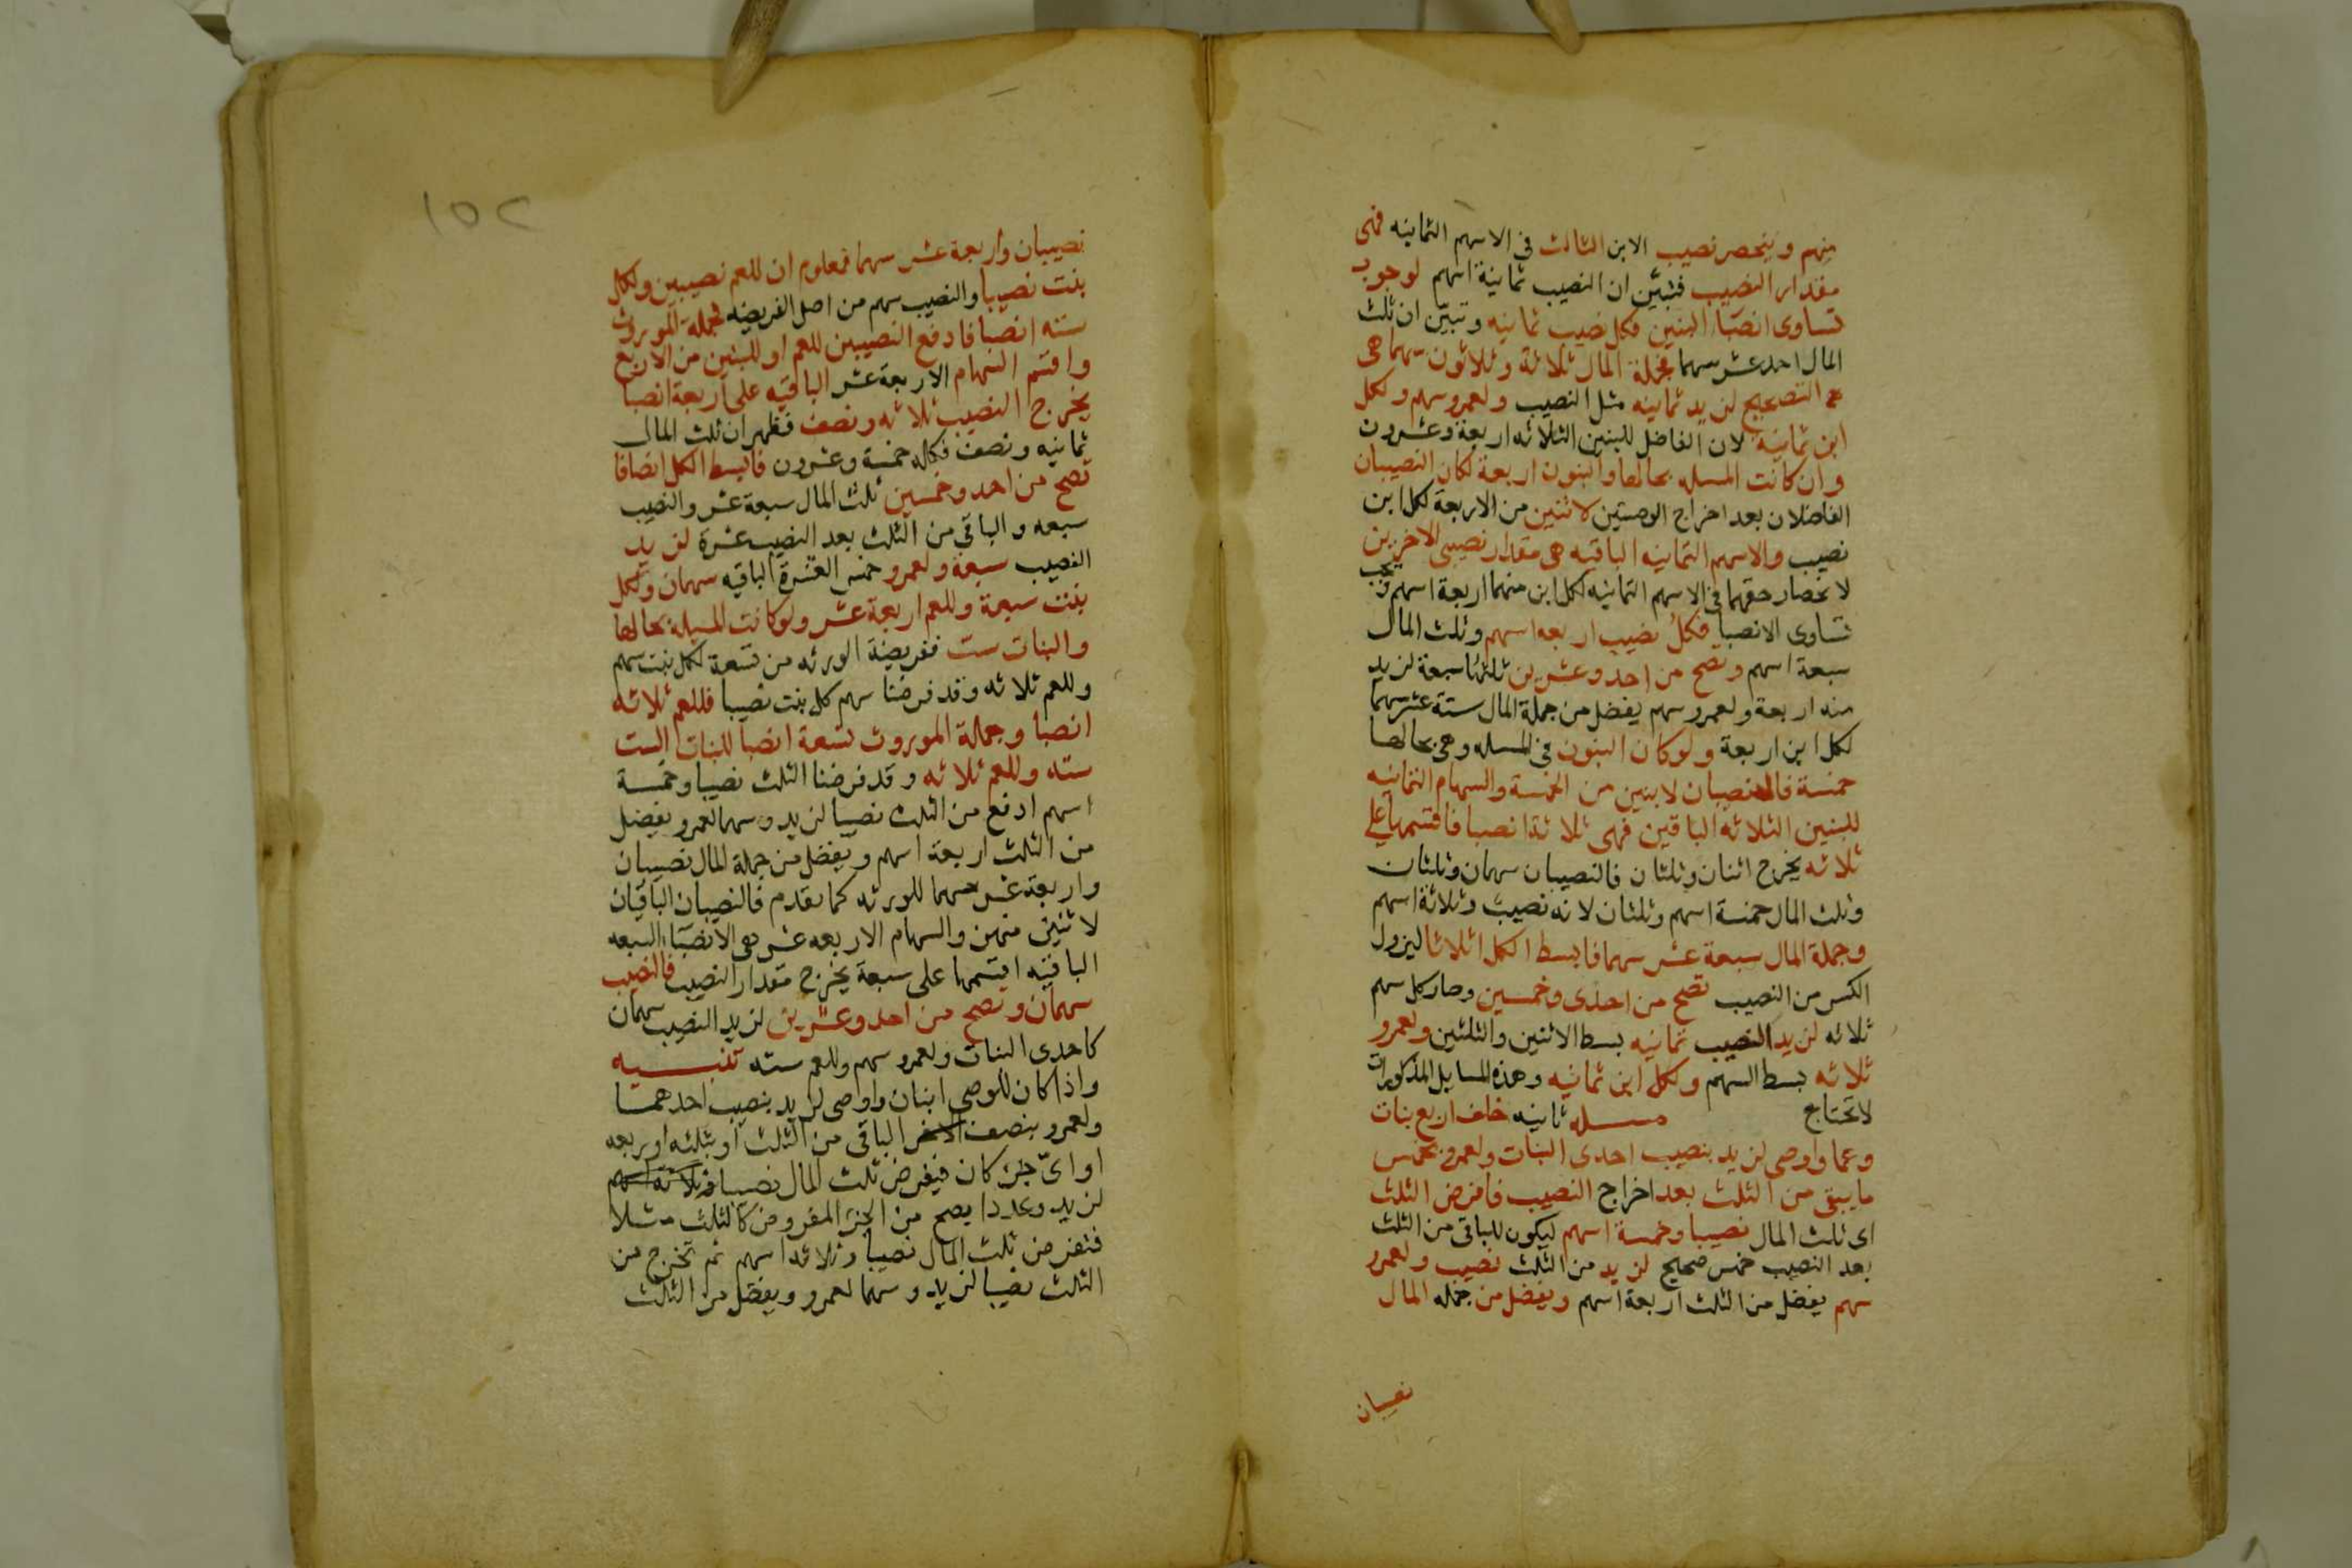 منهم وينحصر نصيب الابن الثالث في الاسهم الثمانيه فهى
مقدار النصيب فتبيّن ان النصيب ثمانية اسهم لوجوب
تساوى انصبآء البنين فكل نصيب ثمانيه وتبيّن ان ثلث
المال احد عشر سهما فجملة المال ثلاثة وثلاثون سهما هى
التصحيح لزيد ثمانيه مثل النصيب ولعمرو سهم ولكل
ابن ثمانية لان الفاضل للبنين الثلاثه اربعة وعشرون
وان كانت المسله بحالها والبنون اربعة لكان النصيبان
الفاضلان بعد اخراج الوصيتين لاثنين من الاربعة لكل ابن
نصيب والاسهم الثمانيه الباقيه هى مقدار نصيبى الاخرين
لانحصار حقهما في الاسهم الثمانيه لكل ابن منهما اربعة اسهم
تساوى الانصبا فكل نصيب اربعه اسهم وثلث المال
سبعة اسهم وتصح من احد وعشرين ثلثها سبعة لزيد
منه اربعة ولعمرو سهم يفضل من جملة المال ستة عشر سهما
لكل ابن اربعة ولو كان البنون في المسله وهى بحالها
خمسة فالنصيبان لابنين من الخمسة والسهام الثمانيه
للبنين الثلاثه الباقين فهى ثلاثة انصبا فاقسمها على
ثلاثه يخرج اثنان وثلثان فالنصيبان سهمان وثلثان
وثلث المال خمسة اسهم وثلثان لانه نصيب وثلاثة اسهم
وجملة المال سبعة عشر سهما فابسط الكل اثلاثا ليزول
الكسر من النصيب تصح من احدى وخمسين وصار كل سهم
ثلاثه لزيد النصيب ثمانيه بسط الاثنين والثلثين ولعمرو
ثلاثه بسط السهم ولكل ابن ثمانيه وهذه المسايل المذكورات
لا تحتاج مسله ثانيه خلف اربع بنات
وعما واوصى لزيد بنصيب احدى البنات ولعمرو بخمس
ما يبقى من الثلث بعد اخراج النصيب فافرض الثلث
اى ثلث المال نصيبا وخمسة اسهم ليكون للباقى من الثلث
بعد النصيب خمس صحيح لزيد من الثلث نصيب ولعمرو
سهم يفضل من الثلث اربعة اسهم ويفضل من جمله المال
نصيبان
١٥٢
نصيبان واربعة عشر سهما فمعلوم ان للعم نصيبين ولكل
بنت نصيبا والنصيب سهم من اصل الفريضه فجملة الموروث
سته انصبا فادفع النصيبين للعم او للبنتين من الاربع
واقسم السهام الاربعة عشر الباقيه على اربعة انصبا
يخرج النصيب ثلاثه ونصف فظهر ان ثلث المال
ثمانيه ونصف فكله خمسة وعشرون فابسط الكل انصافا
تصح من احد وخمسين ثلث المال سبعة عشر والنصيب
سبعه والباقى من الثلث بعد النصيب عشرة لزيد
النصيب سبعة ولعمرو خمس العشرة الباقيه سهمان ولكل
بنت سبعة وللعم اربعة عشر ولو كانت المسله بحالها
والبنات ست ففريضة الورثه من تسعة لكل بنت سهم
وللعم ثلاثه وقد فرضنا سهم كل بنت نصيبا فللعم ثلاثه
انصبا وجملة الموروث تسعة انصبا للبنات الست
سته وللعم ثلاثه وقد فرضنا الثلث نصيبا وخمسة
اسهم ادفع من الثلث نصيبا لزيد وسهما لعمرو يفضل
من الثلث اربعة اسهم ويفضل من جملة المال نصيبان
واربعة عشر سهما للورثه كما تقدم فالنصيبان الباقيان
لاثنتين منهن والسهام الاربعه عشر هى الانصبآء السبعه
الباقيه اقسمها على سبعة يخرج مقدار النصيب فالنصيب
سهمان وتصح من احد وعشرين لزيد النصيب سهمان
كاحدى البنات ولعمرو سهم وللعم سته تنبيه
واذا كان للموصى ابنان واوصى لزيد بنصيب احدهما
ولعمرو بنصف الباقى من الثلث او بثلثه او ربعه
او اىّ جزء كان فيفرض ثلث المال نصيبا
لزيد وعددا يصح من الجزء المفروض كالثلث مثلا
فتفرض ثلث المال نصيبا وثلاثة اسهم ثم تخرج من
الثلث نصيبا لزيد وسهما لعمرو ويفضل من الثلث